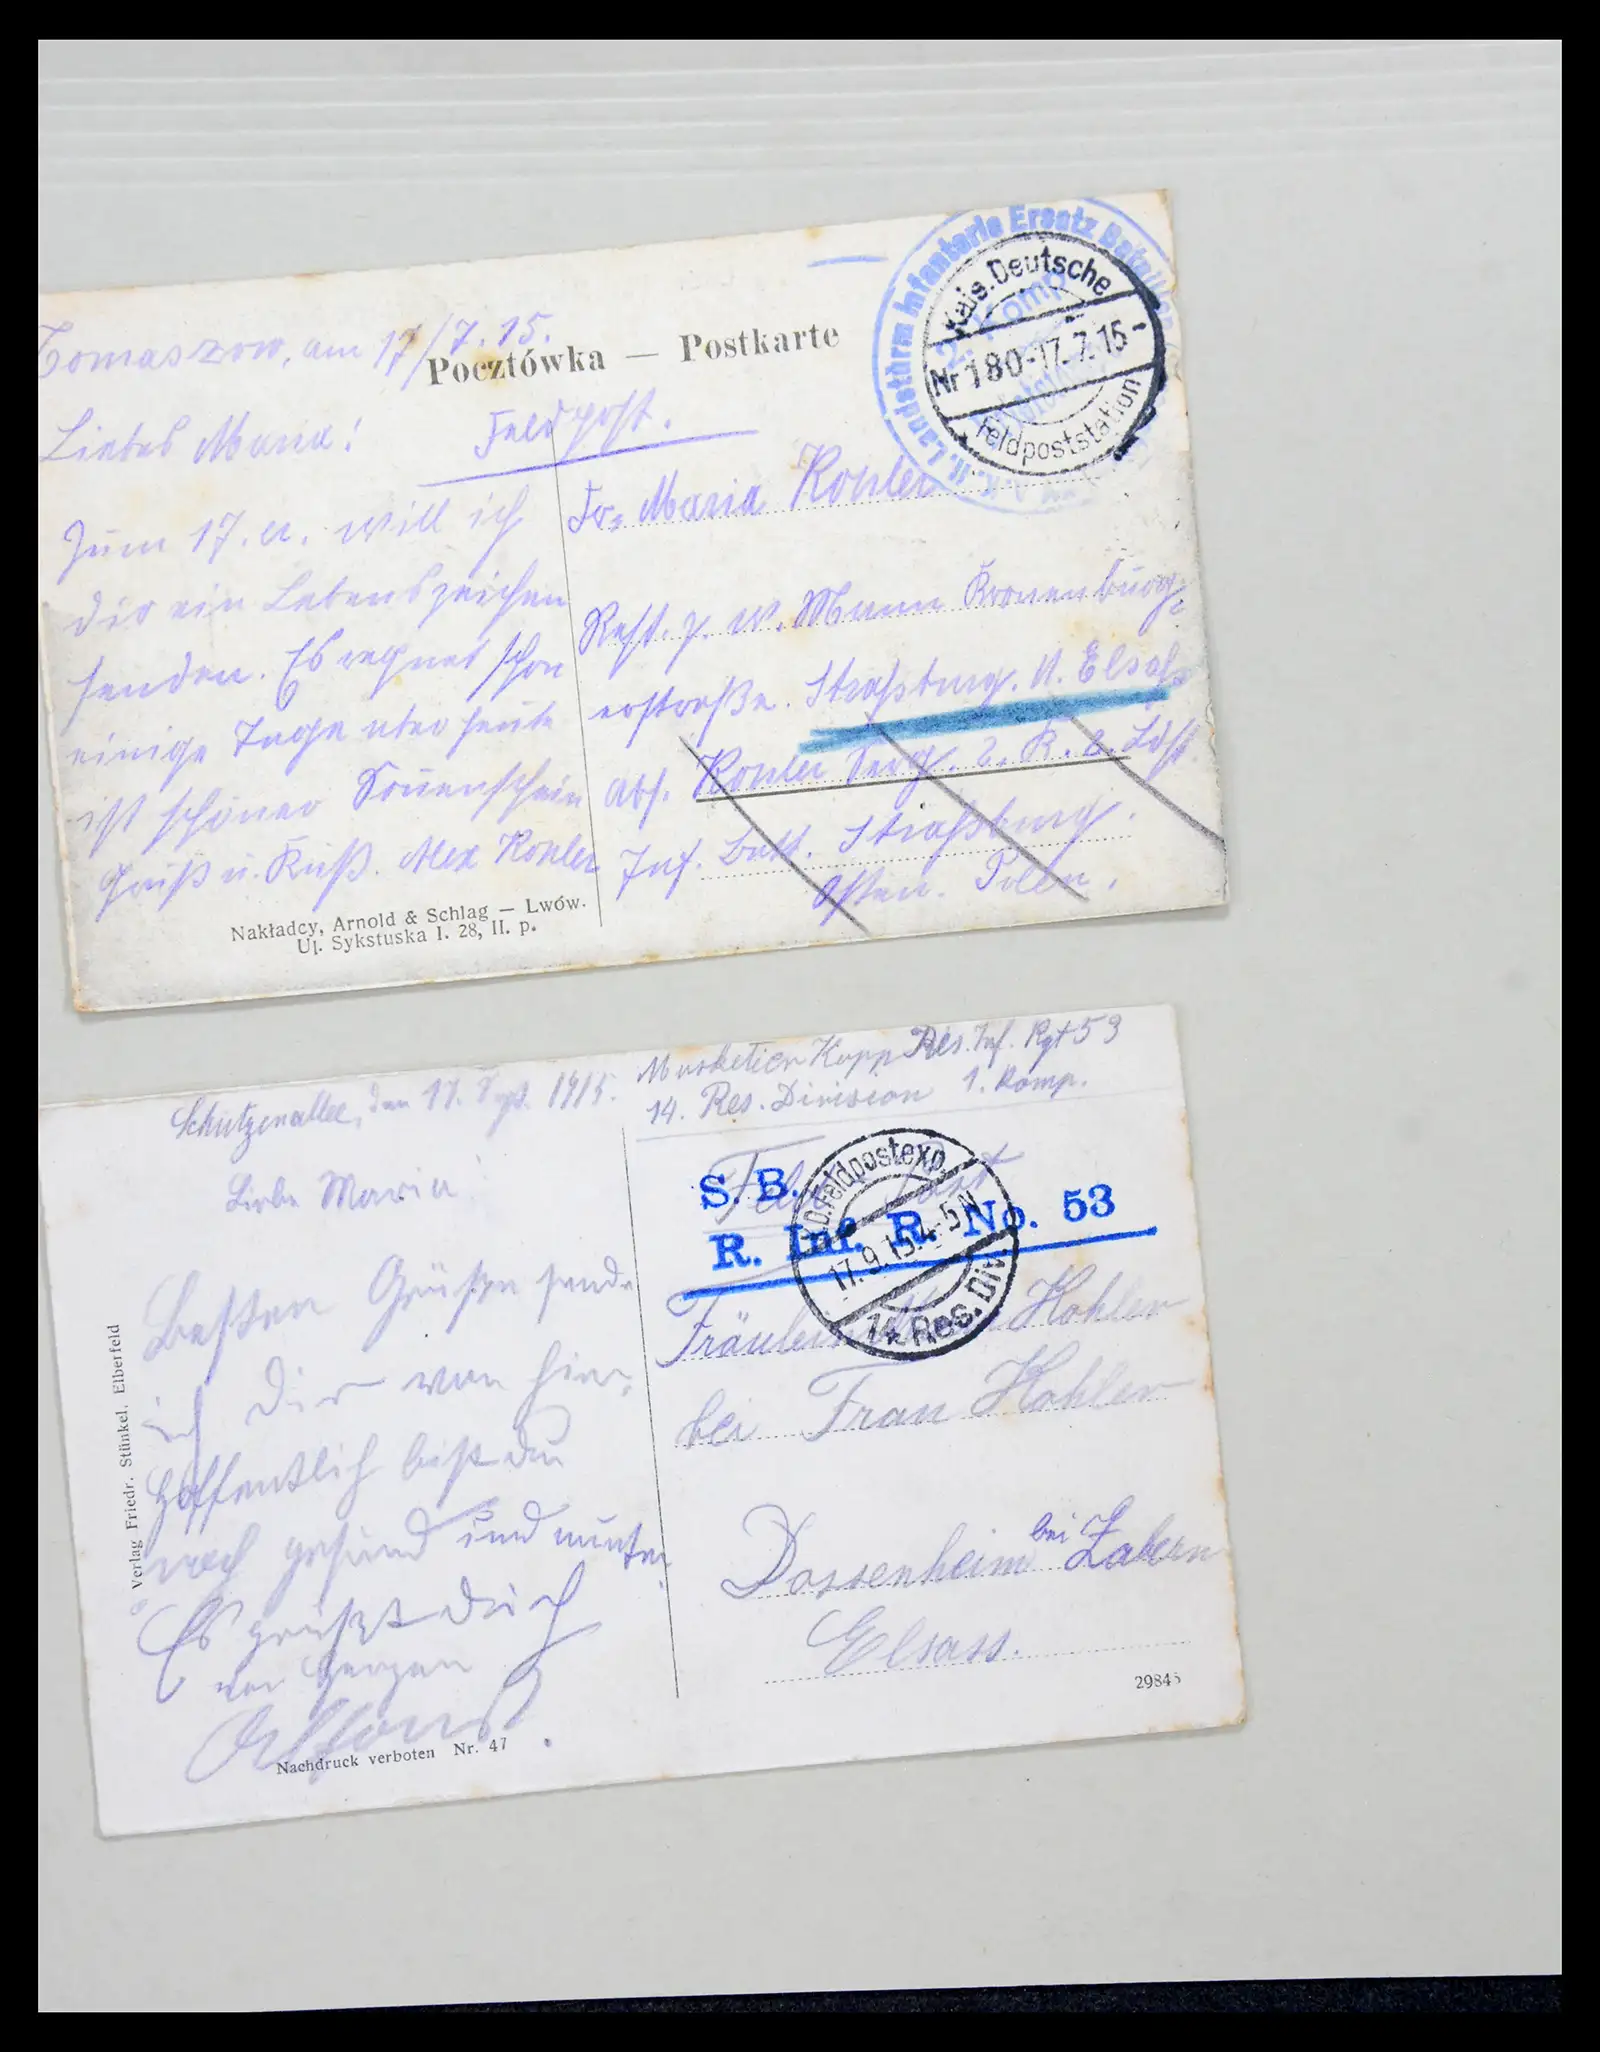 Tomaszow, am 17/7.15.
Pocztówka — Postkarte
Liebes Maria!
Feldpost.
Zum 17. er. will ich
dir ein Lebenszeichen
senden. Es regnet schon
einige Tage aber heute
ist schöner Sonnenschein
Gruß u. Kuß. Alex Kohler
Nakładcy, Arnold & Schlag — Lwów.
Ul. Sykstuska l. 28, II. p.
K. K. Landsturm Infanterie Ersatz Bataillon
2. Komp
Kais. Deutsche
Nr 180 - 17. 7. 15 -
Feldpoststation
Fr. Maria Kohler
Rest. z. w. Mann Kronenburg-
erstraße. Straßburg. i. Elsaß
Abs. Kohler Serg. 2. K. 2. Ldst.
Inf. Batt. Straßburg.
Osten. Polen.
Schützenallee, den 17. Sept. 1915.
Liebe Maria!
Besten Grüße sende
ich Dir von hier,
Hoffentlich bist du
noch gesund und munter
Es grüßt Dich
von Herzen
Alfons.
Verlag Friedr. Stünkel, Elberfeld
Nachdruck verboten Nr. 47
Musketier Kopp Res. Inf. Rgt 53
14. Res. Division 1. Komp.
Feld Post
S. B.
R. Inf. R. No. 53
K.D. Feldpostexp.
17. 9. 15. 4-5 N
14. Res. Div.
Fräulein Kohler
bei Frau Kohler
Dossenheim bei Zabern
Elsass.
29845